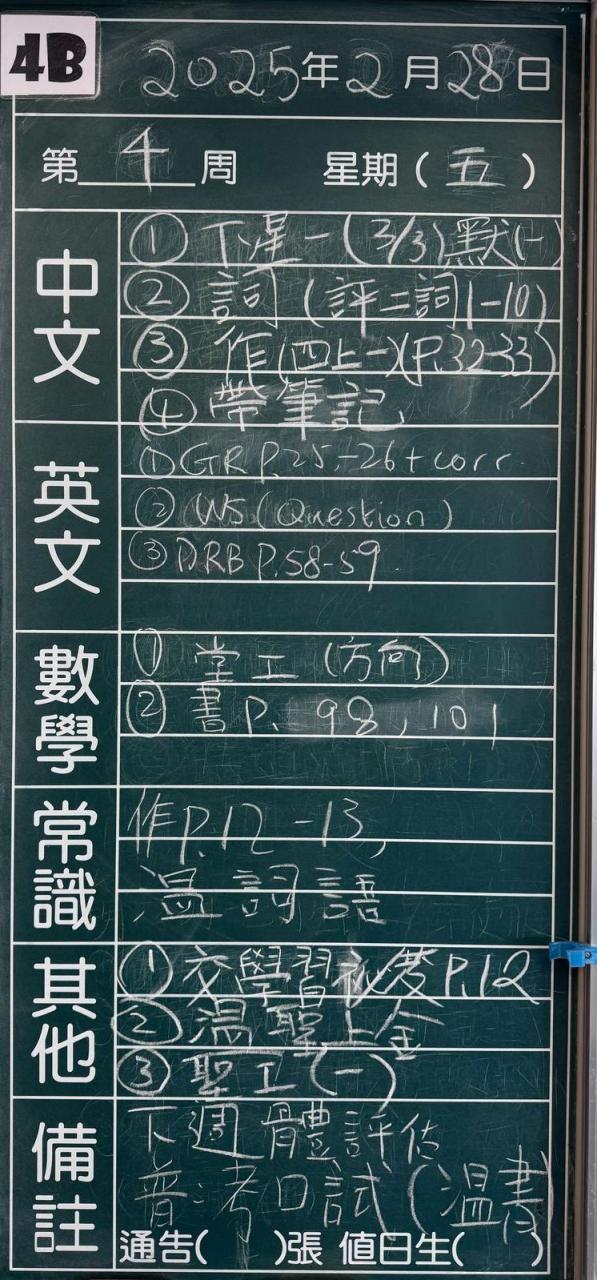 4B
2025年2月28日
第 4 周 星期(五)
中文
① 下星一(3/3)默(一)
② 詞(評二詞1-10)
③ 作(四上一)(P.32-33)
④ 帶筆記
英文
① GR P.25-26 + corr.
② WS (Question)
③ DRB P.58-59.
數學
① 堂工(方向)
② 書P. 98, 101
常識
作P.12-13,
溫詞語
其他
① 交學習 P.12
② 溫聖上金
③ 聖工(一)
備註
下週體評估
普考口試(溫書)
通告( )張 值日生( )